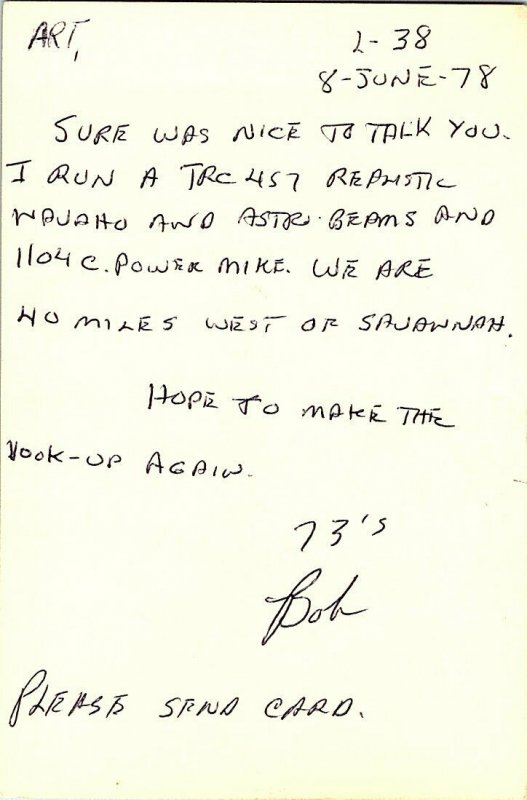 ART,
L-38
8-JUNE-78
SURE WAS NICE TO TALK YOU.
I RUN A TRC 457 REALISTIC
NAVAHO AND ASTRO-BEAMS AND
1104 C. POWER MIKE. WE ARE
40 MILES WEST OF SAVANNAH.
HOPE TO MAKE THE
HOOK-UP AGAIN.
73's
Bob
PLEASE SEND CARD.